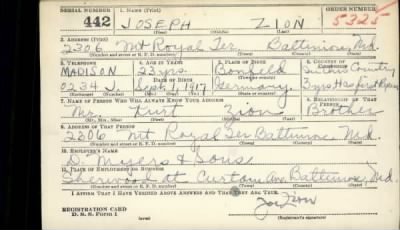 SERIAL NUMBER 1. NAME (Print) ORDER NUMBER
442 JOSEPH ZION 5325
2. ADDRESS (Print)
2306 Mt Royal Ter. Baltimore, Md.
3. TELEPHONE 4. AGE IN YEARS 5. PLACE OF BIRTH 6. COUNTRY OF
MADISON 23 yrs. In this Country
DATE OF BIRTH
0234 J. Sept. 1, 1917 Germany 3 yrs
7. NAME OF PERSON WHO WILL ALWAYS KNOW YOUR ADDRESS 8. RELATIONSHIP OF THAT PERSON
Mr. Kurt Zion Brother
(Mr., Mrs., Miss) (First) (Middle) (Last)
9. ADDRESS OF THAT PERSON
2306 Mt Royal Ter Baltimore, Md.
10. EMPLOYER'S NAME
D. Myers & Sons
11. PLACE OF EMPLOYMENT OR BUSINESS
Sherwood at Curtain Ave Baltimore, Md.
I AFFIRM THAT I HAVE VERIFIED ABOVE ANSWERS AND THAT THEY ARE TRUE.
REGISTRATION CARD
D. S. S. Form 1 (Registrant's signature)